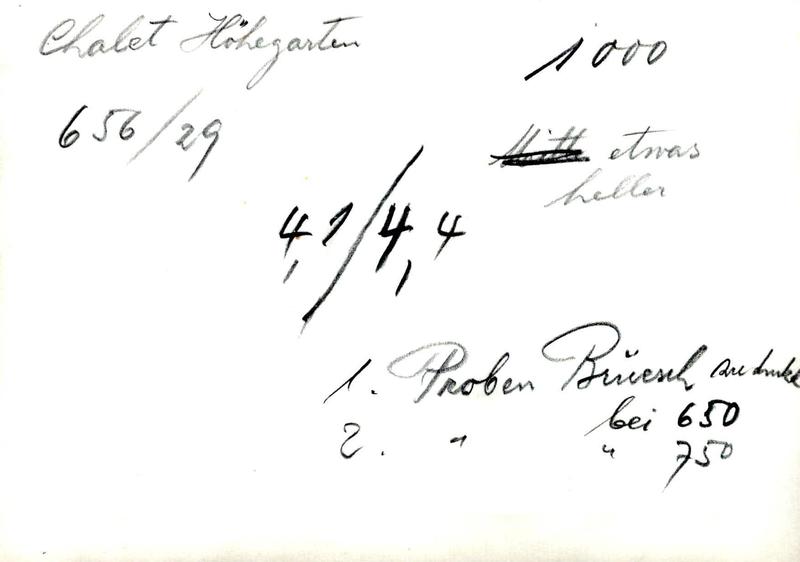 Chalet Höhegarten
1000
656/29
etwas
heller
4,1/4,4
1. Proben Brüesch
bei 650
2. " " 750